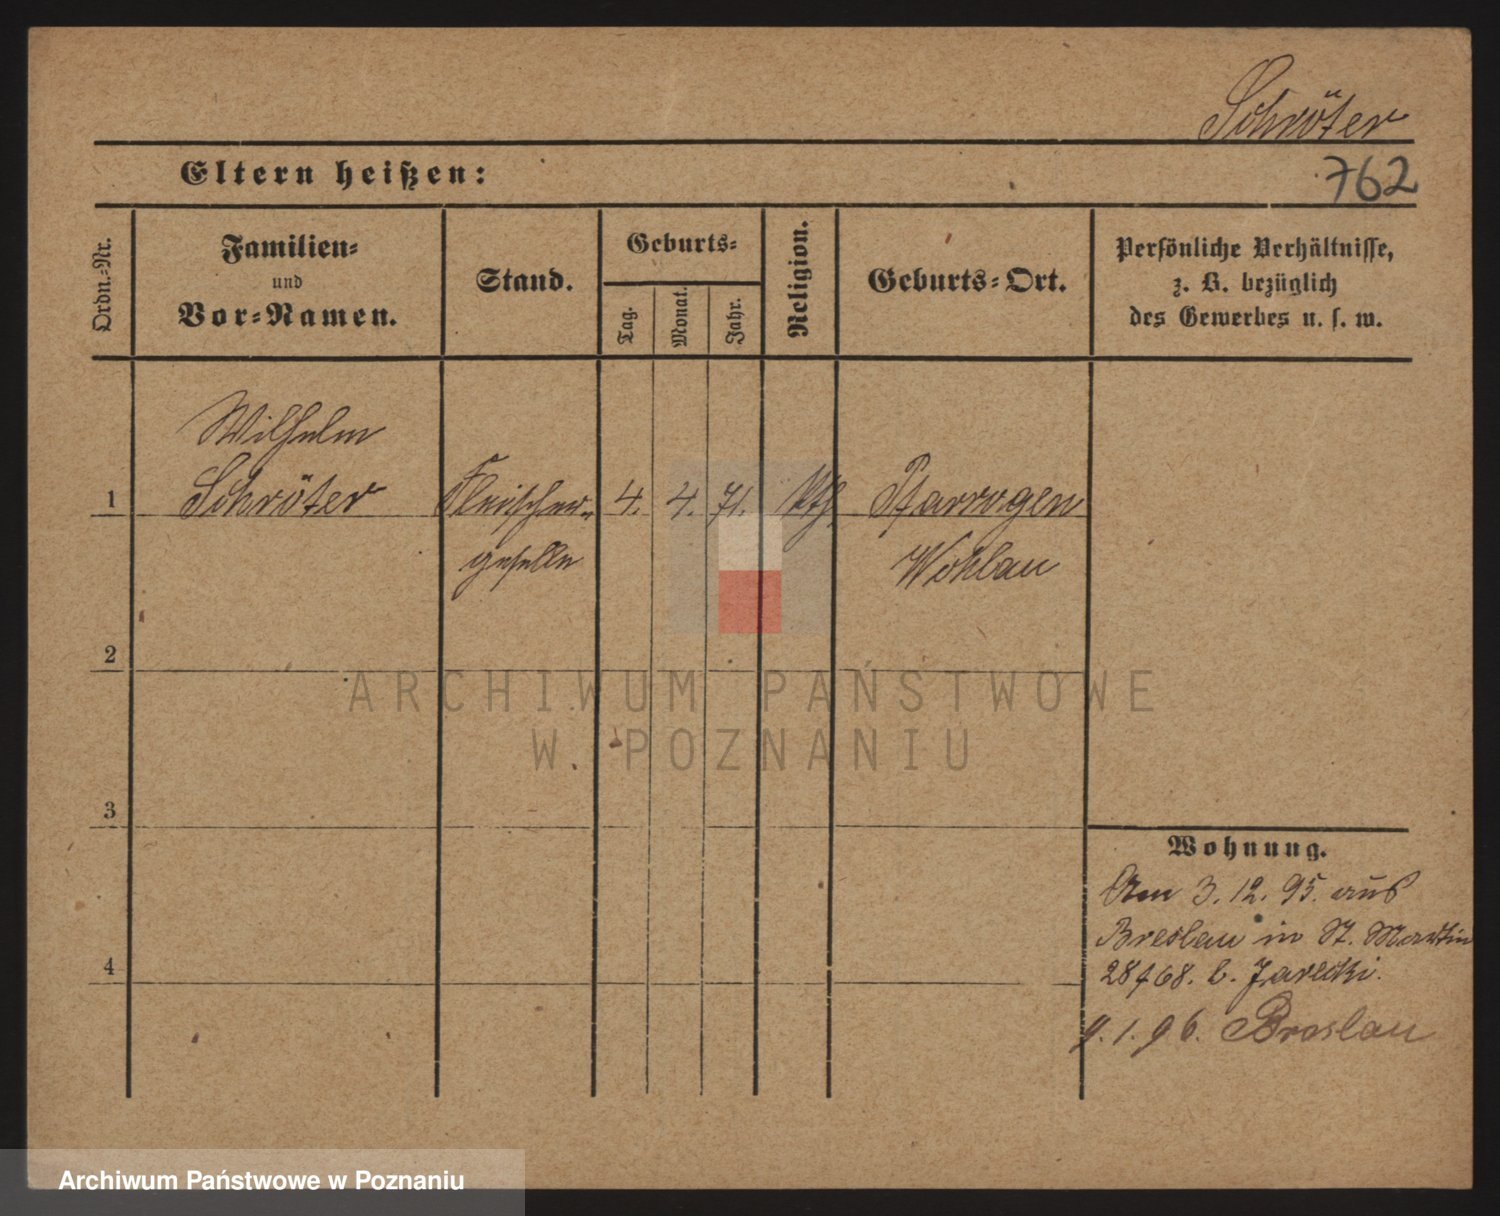 Schröter
Eltern heißen:
762
Ordn.-Nr.
Familien-
und
Vor-Namen.
Stand.
Geburts-
Tag.
Monat.
Jahr.
Religion.
Geburts-Ort.
Persönliche Verhältnisse,
z. B. bezüglich
des Gewerbes u. s. w.
Wilhelm
1 Schröter Fleischer- 4. 4. 71. kth. Pfarrogen
geselle Wohlau
2
ARCHIWUM PAŃSTWOWE
W POZNANIU
3
Wohnung.
Am 3. 12. 95. aus
Breslau in St. Martin
4
28/68. b. Jarecki.
9. 1. 96. Breslau
Archiwum Państwowe w Poznaniu